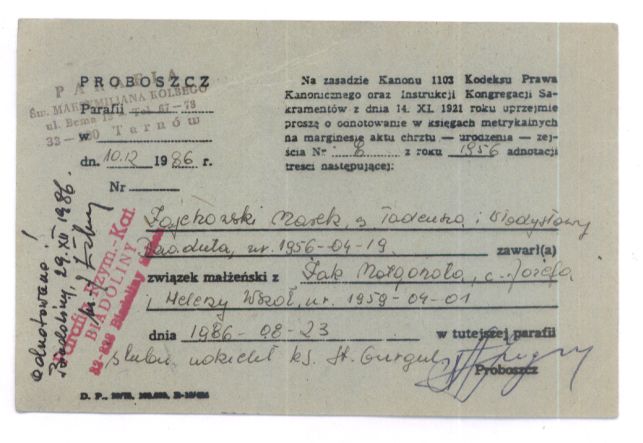 PROBOSZCZ
PARAFIA
Parafii
Św. MAKSYMILIANA KOLBEGO
ul. Bema tel 67-78
w
33-100 Tarnów
dn. 10.12 1986 r.
Nr
Na zasadzie Kanonu 1103 Kodeksu Prawa
Kanonicznego oraz Instrukcji Kongregacji Sa-
kramentów z dnia 14. XI. 1921 roku uprzejmie
proszę o odnotowanie w księgach metrykalnych
na marginesie aktu chrztu — urodzenia — zej-
ścia Nr 6 z roku 1956 adnotacji
treści następującej:
Marek, s. Tadeusza i Władysławy
ur. 1956-04-19 zawarł(a)
związek małżeński z Żak Małgorzatą, c. Józefa
i Heleny ur. 1959-04-01
dnia 1986-08-23 w tutejszej parafii
ślubu udzielił ks. St. Gurgul
Proboszcz
D. P.,
odnotowano!
Biadoliny, 29.XII 1986.
Parafia Rzym.-Kat.
BIADOLINY